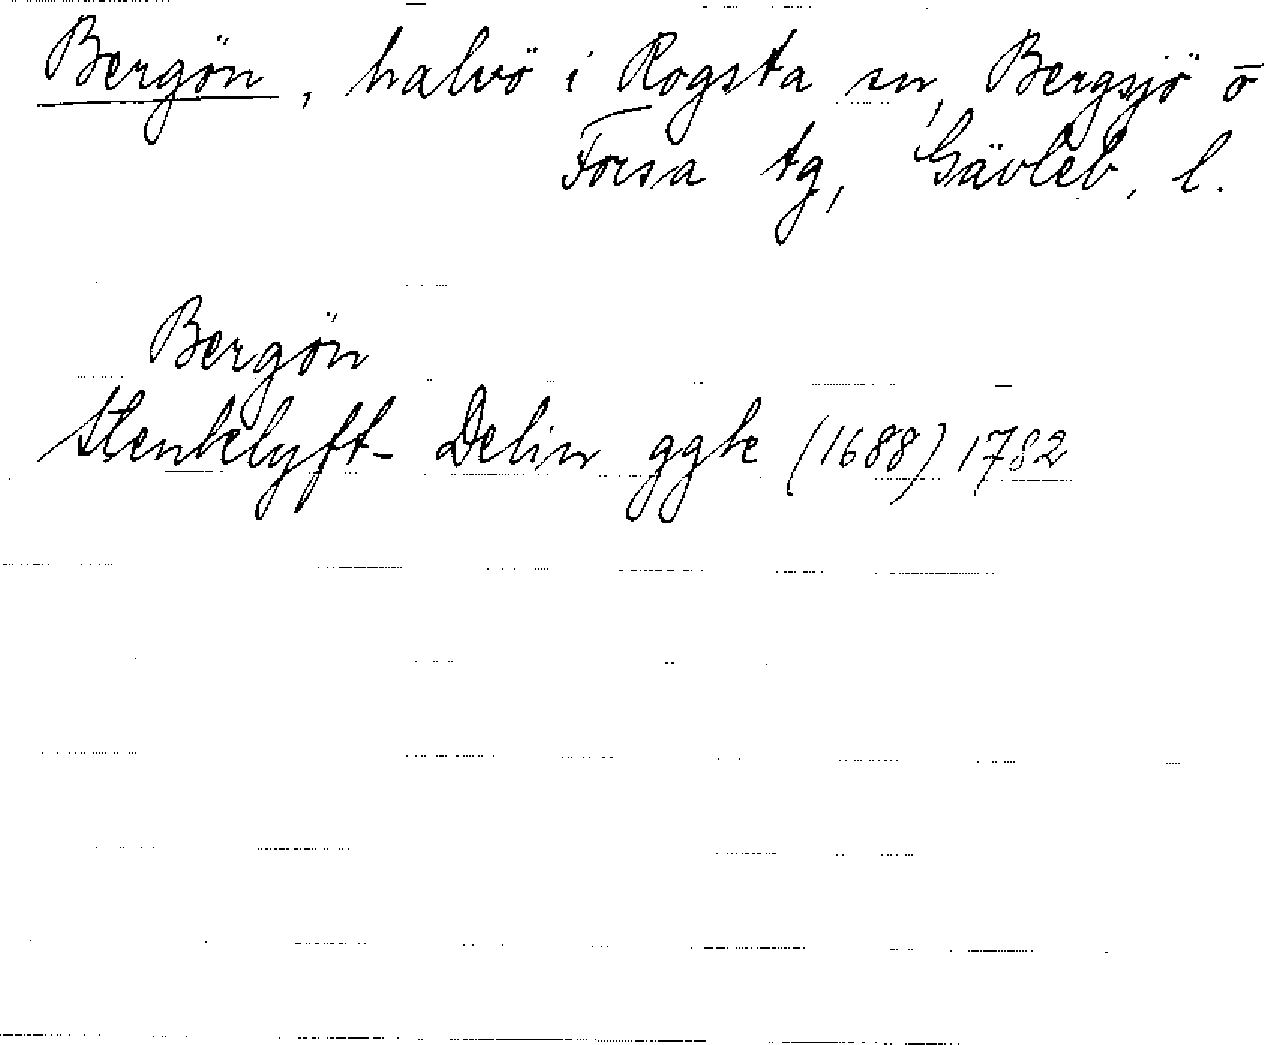 Bergön, halvö i Rogsta sn, Bergsjö o
Forsa tg, Gävleb. l.
Bergön
Stenklyft- Delin ggbe (1688) 1782